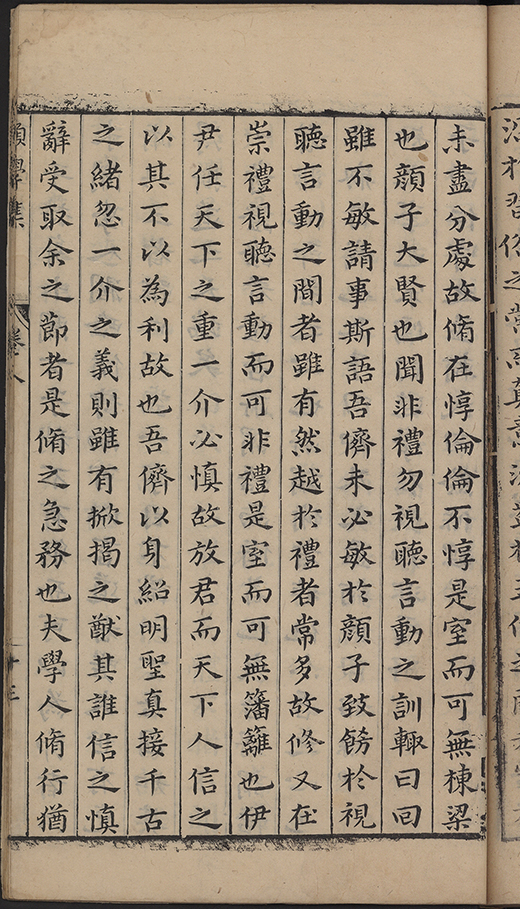 未盡分處故脩在惇倫倫不惇是室而可無棟梁
也顔子大賢也聞非禮勿視聽言動之訓輙曰回
雖不敏請事斯語吾儕未必敏於顔子致餝於視
聽言動之間者雖有然越於禮者常多故修又在
崇禮視聽言動而可非禮是室而可無籓籬也伊
尹任天下之重一介必慎故放君而天下人信之
以其不以為利故也吾儕以身紹明聖真接千古
之緒忽一介之義則雖有掀揭之猷其誰信之慎
辭受取余之節者是脩之急務也夫學人脩行猶
願學集
卷八
十三